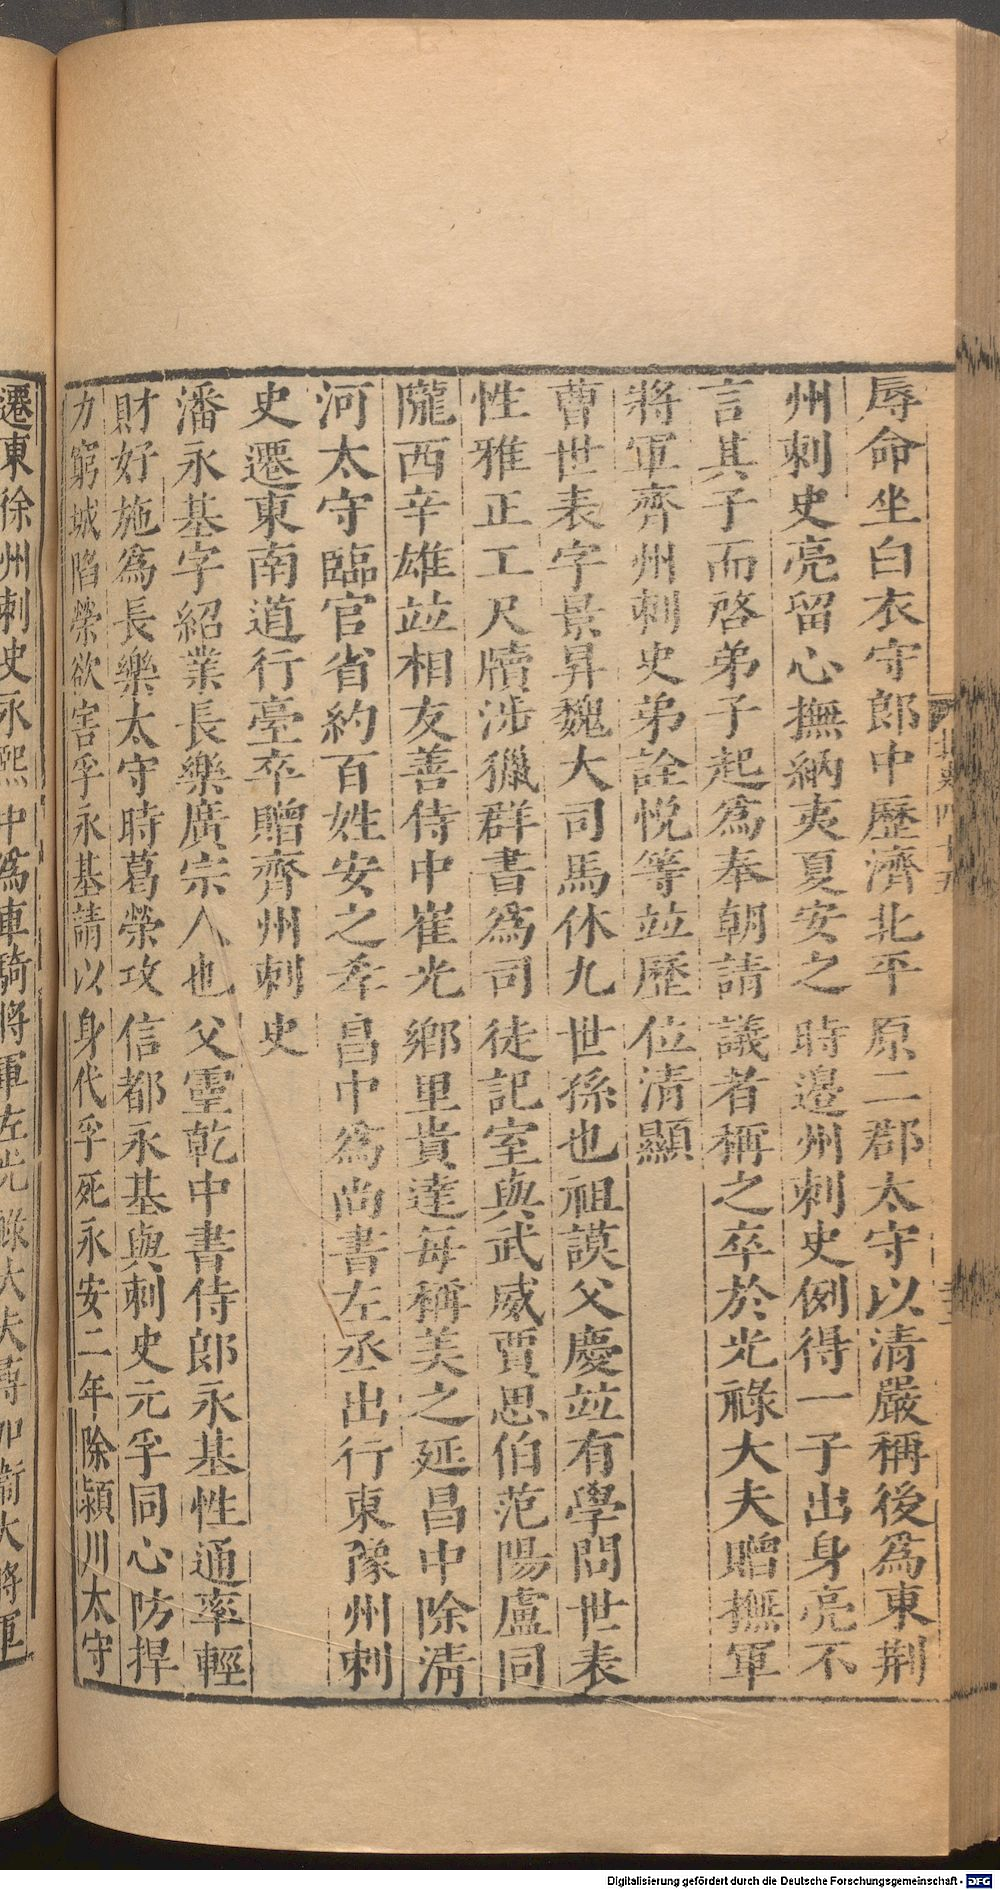 辱命坐白衣守郎中歷濟北平原二郡太守以清嚴稱後爲東荆
州刺史亮留心撫納夷夏安之時邉州刺史例得一子出身亮不
言其子而啓弟子起爲奉朝請議者稱之卒於光祿大夫贈撫軍
將軍齊州刺史弟詮悅等竝歷位清顯
曹世表字景昇魏大司馬休九世孫也祖謨父慶竝有學問世表
性雅正工尺牘涉獵群書爲司徒記室與武威賈思伯范陽盧同
隴西辛雄竝相友善侍中崔光鄉里貴達每稱美之延昌中除清
河太守臨官省約百姓安之孝昌中爲尚書左丞出行東豫州刺
史遷東南道行臺卒贈齊州刺史
潘永基字紹業長樂廣宗人也父靈乾中書侍郎永基性通率輕
財好施爲長樂太守時葛榮攻信都永基與刺史元孚同心防捍
力窮城陷榮欲害孚永基請以身代孚死永安二年除潁川太守
遷東徐州刺史永熙中爲車騎將軍左光祿大夫尋加衞大將軍
北史四十五
Digitalisierung gefördert durch die Deutsche Forschungsgemeinschaft - DFG